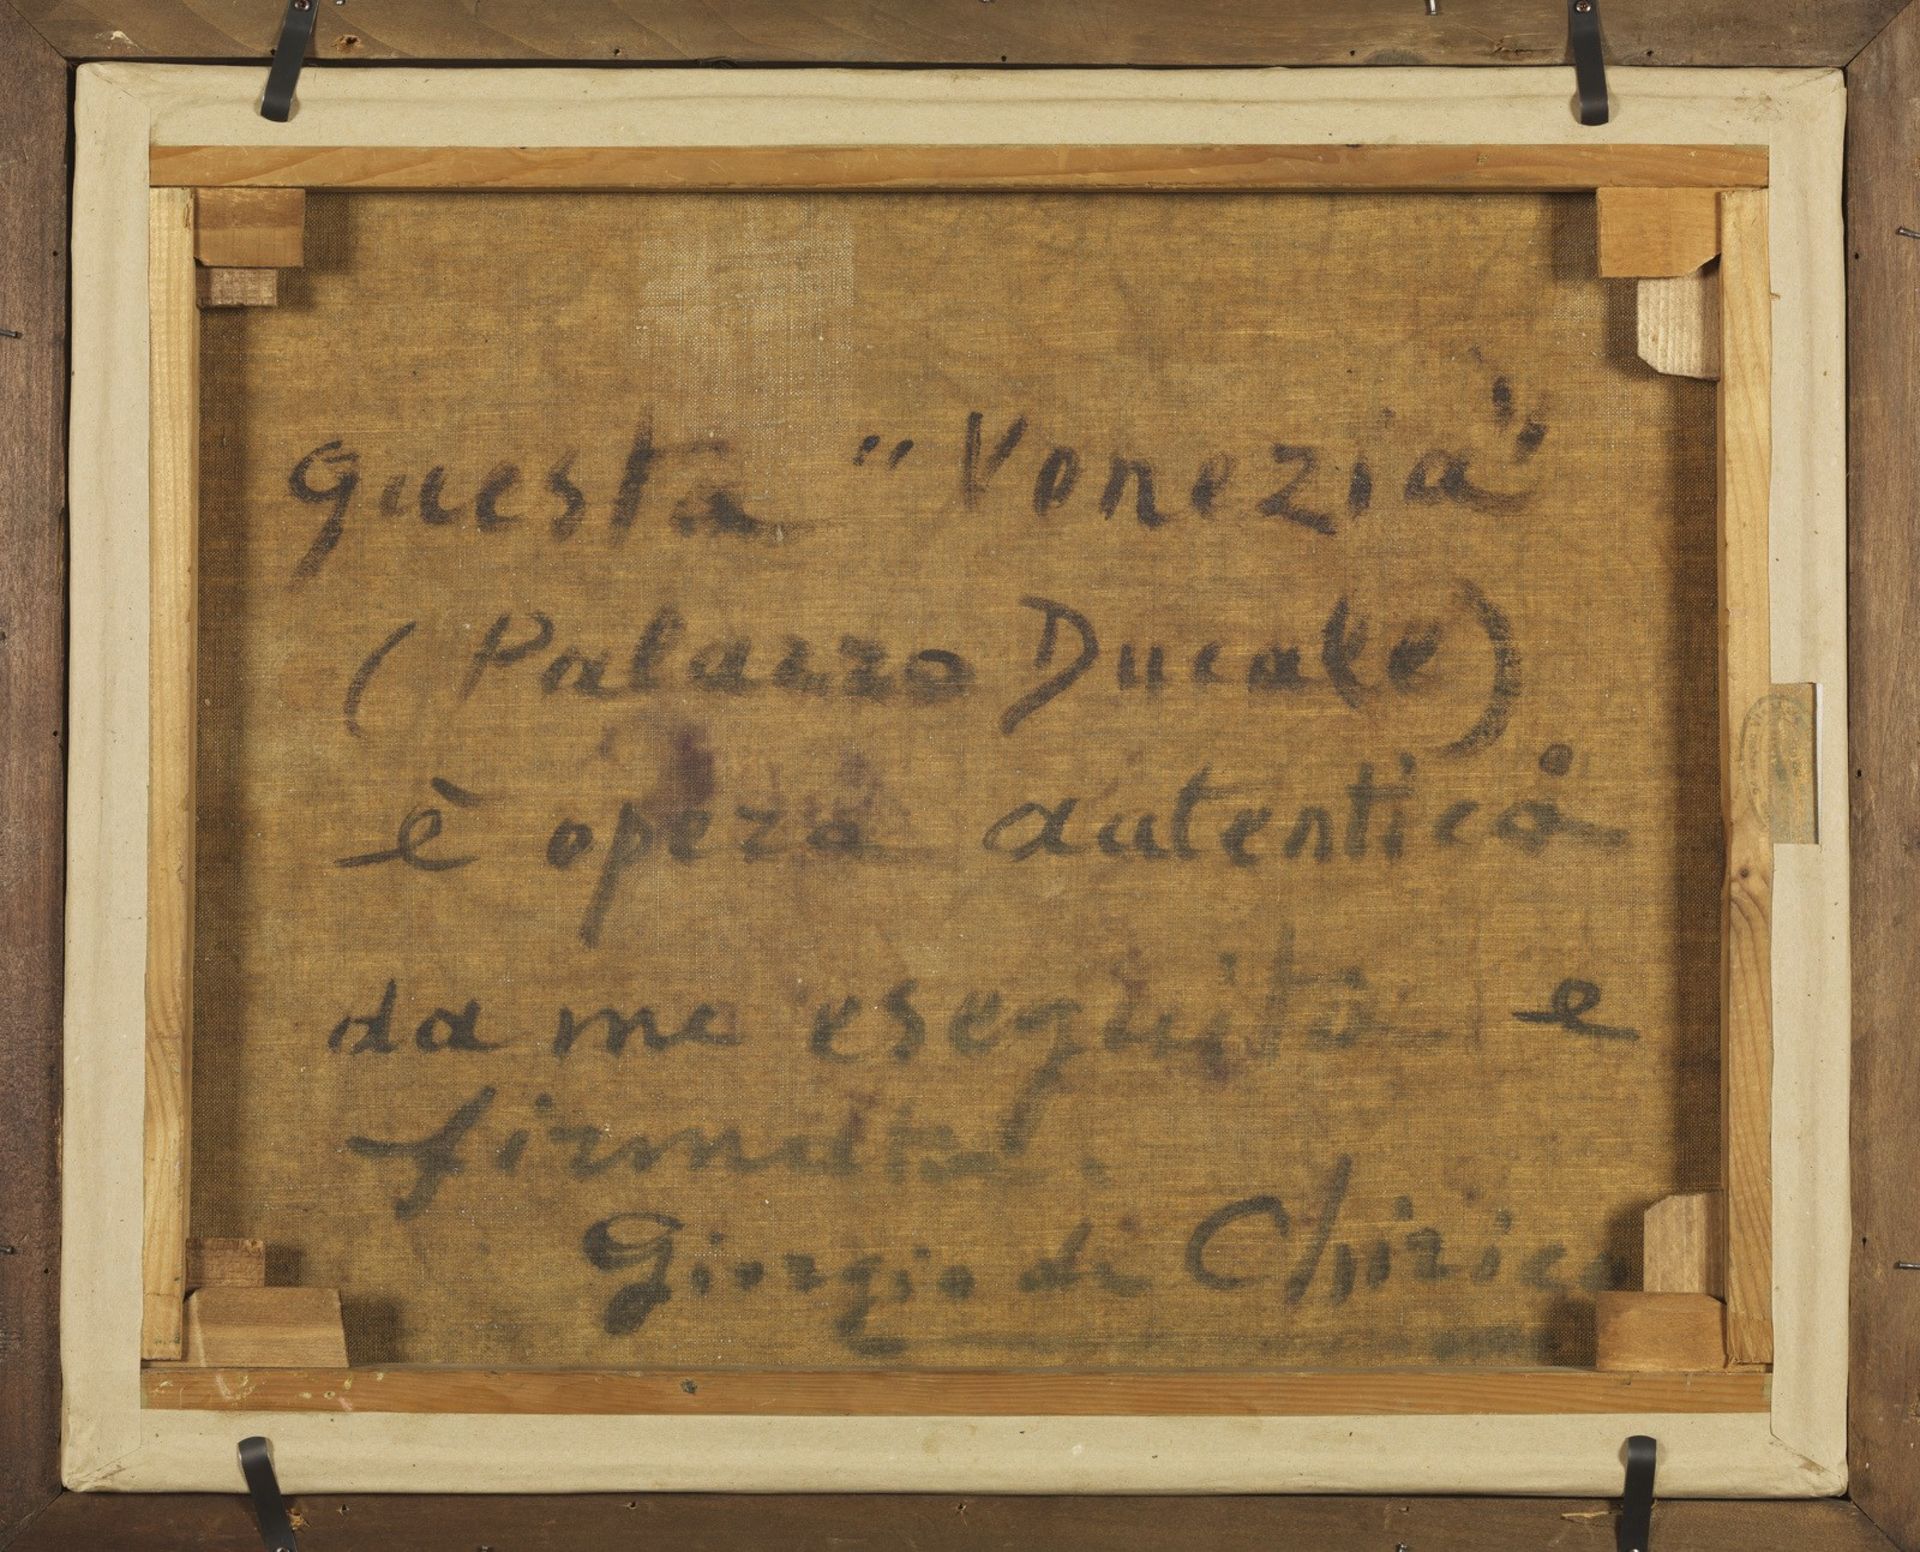 questa "Venezia"
(Palazzo Ducale)
è opera autentica
da me eseguita e
firmata.
Giorgio de Chirico